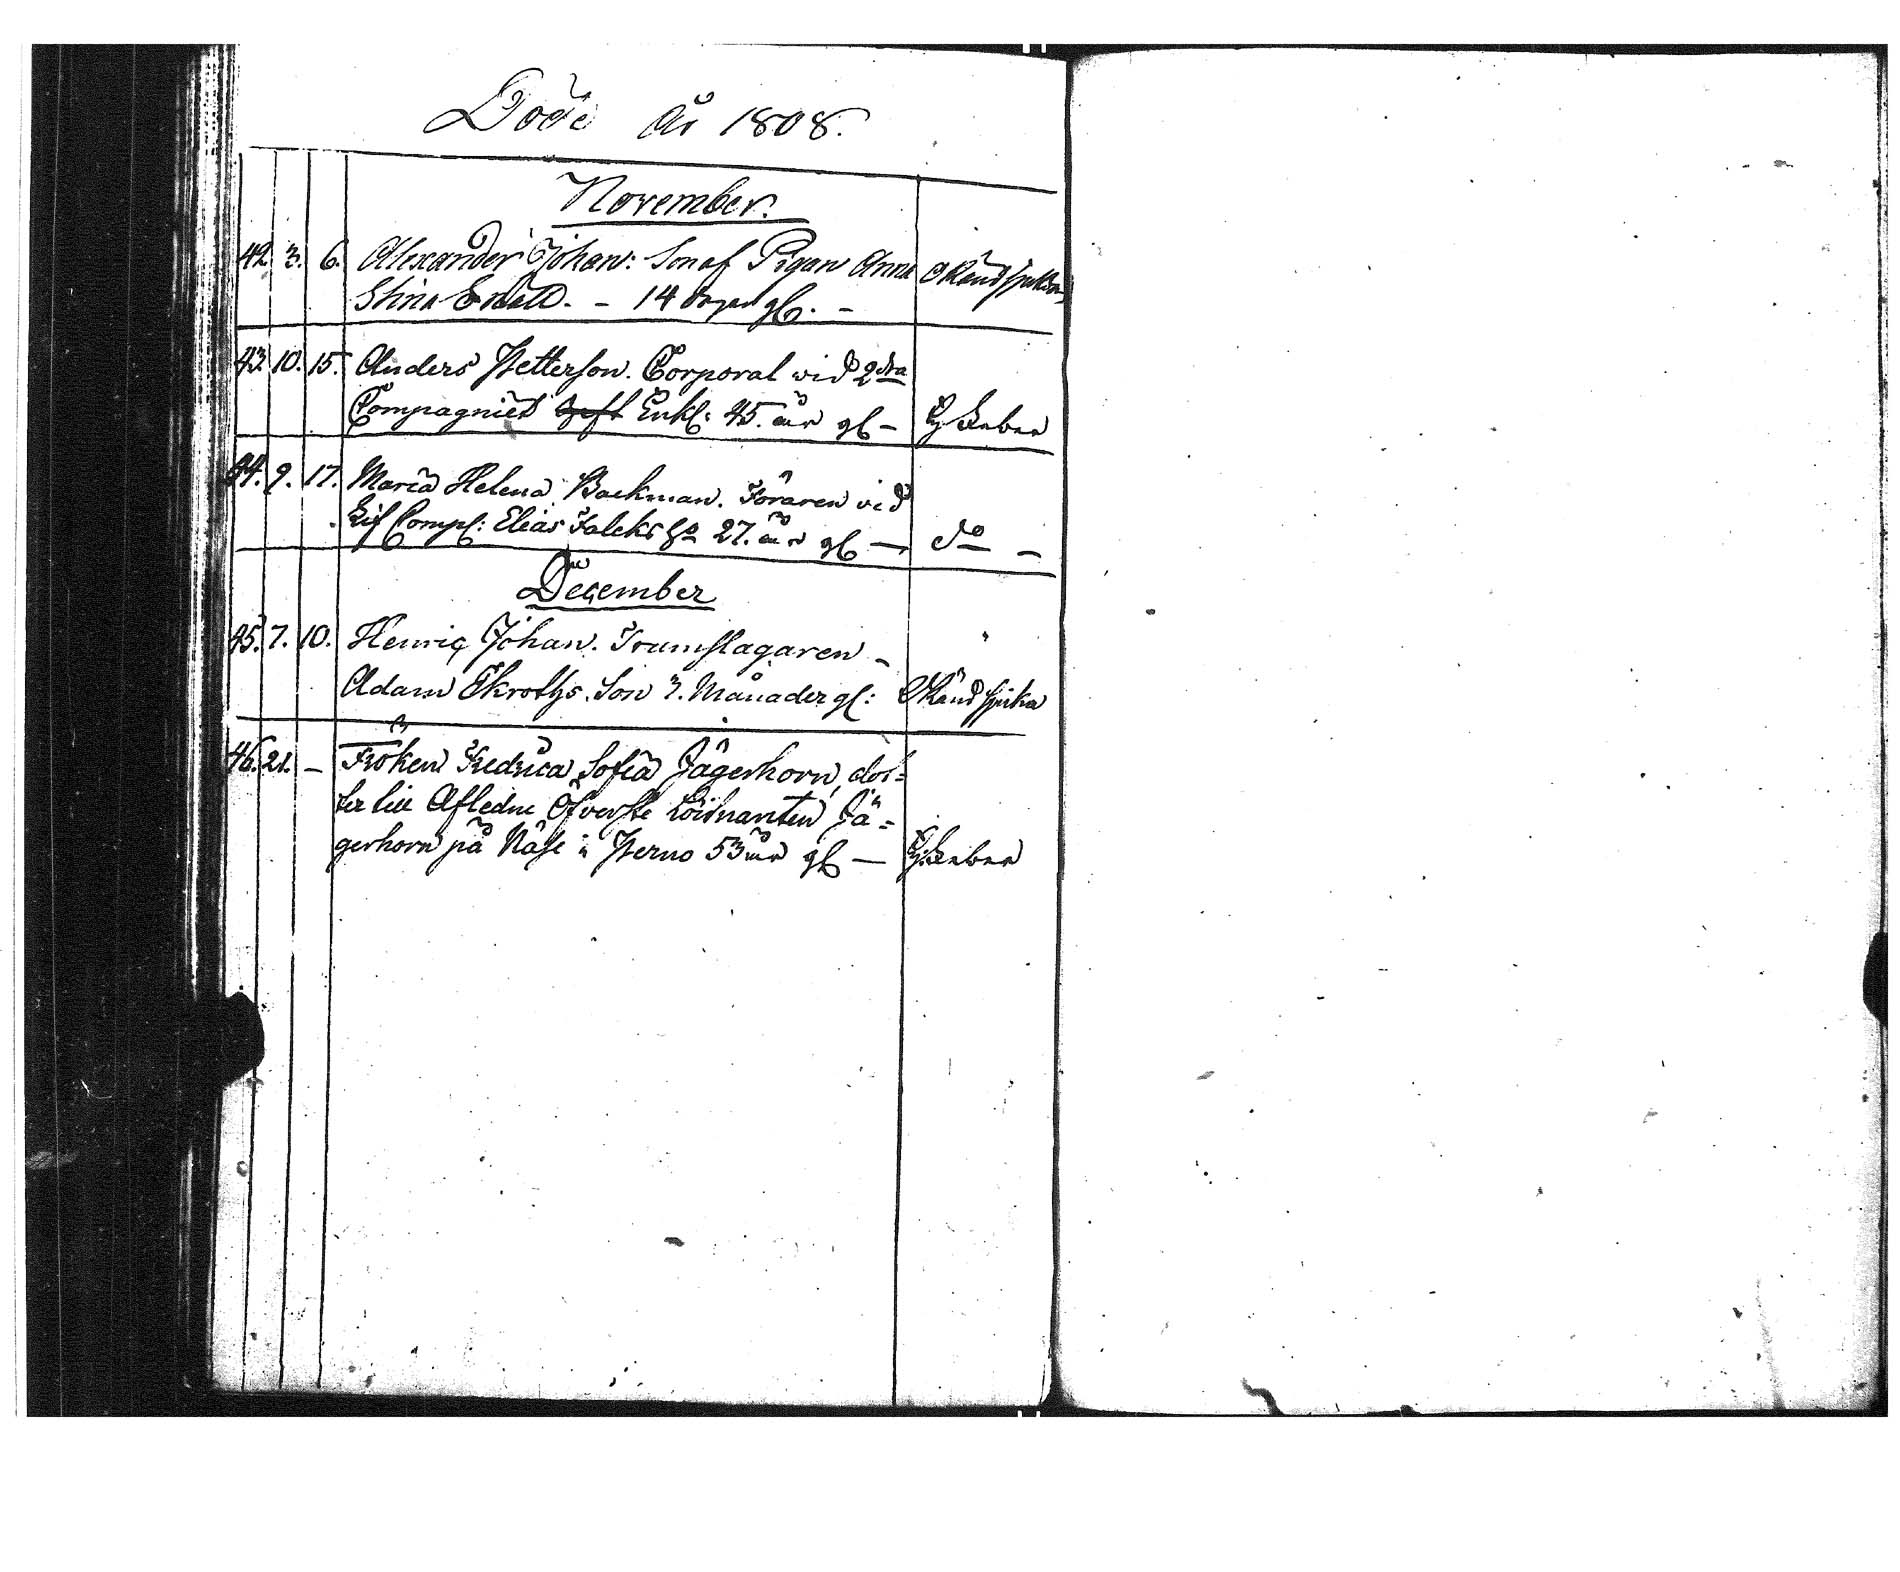 Döde År 1808.
November.
42. 3. 6. Alexander Johan: Son af Pigan Anna Okänd sjukdom
Stina Enwald. - 14 dagar gl. -
43. 10. 15. Anders Petterson. Corporal vid 2dra
Compagniet Enkl: 45. år gl - Feber
44. 9. 17. Maria Helena Backman. Föraren vid
Lif Comp: Elias Falcks 27. år gl — do -
December
45. 7. 10. Henric Johan. Trumslagaren -
Adam Ekroths. Son 3. Månader gl: Okänd sjuka
46. 21. - Fröken Fredrica Sofia Jägerhorn, dot=
ter till Afledne Öfverste Löitnanten Jä=
gerhorn på Näse i Perno 53 år gl — Feber